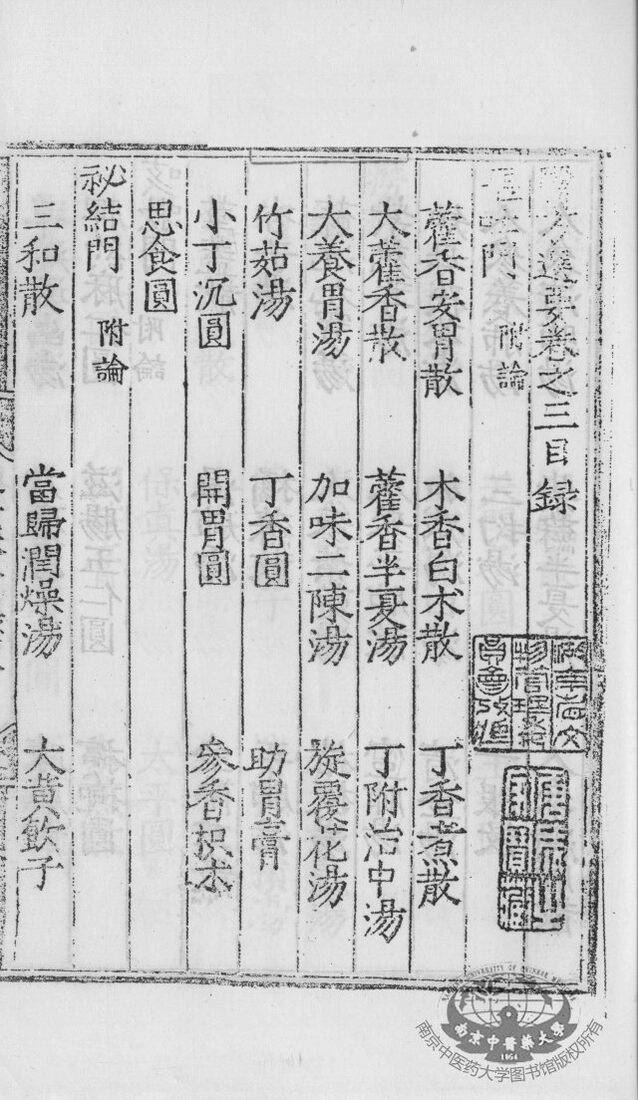 選要卷之三目録
吐門 附論
藿香安胃散 木香白术散 丁香煮散
大藿香散 藿香半夏湯 丁附治中湯
大養胃湯 加味二陳湯 旋覆花湯
竹茹湯 丁香圓 助胃膏
小丁沉圓 開胃圓 參香枳朮
思食圓
祕結門 附論
三和散 當歸潤燥湯 大黄飲子
南京中醫藥大學
1954
南京中医药大学图书馆版权所有